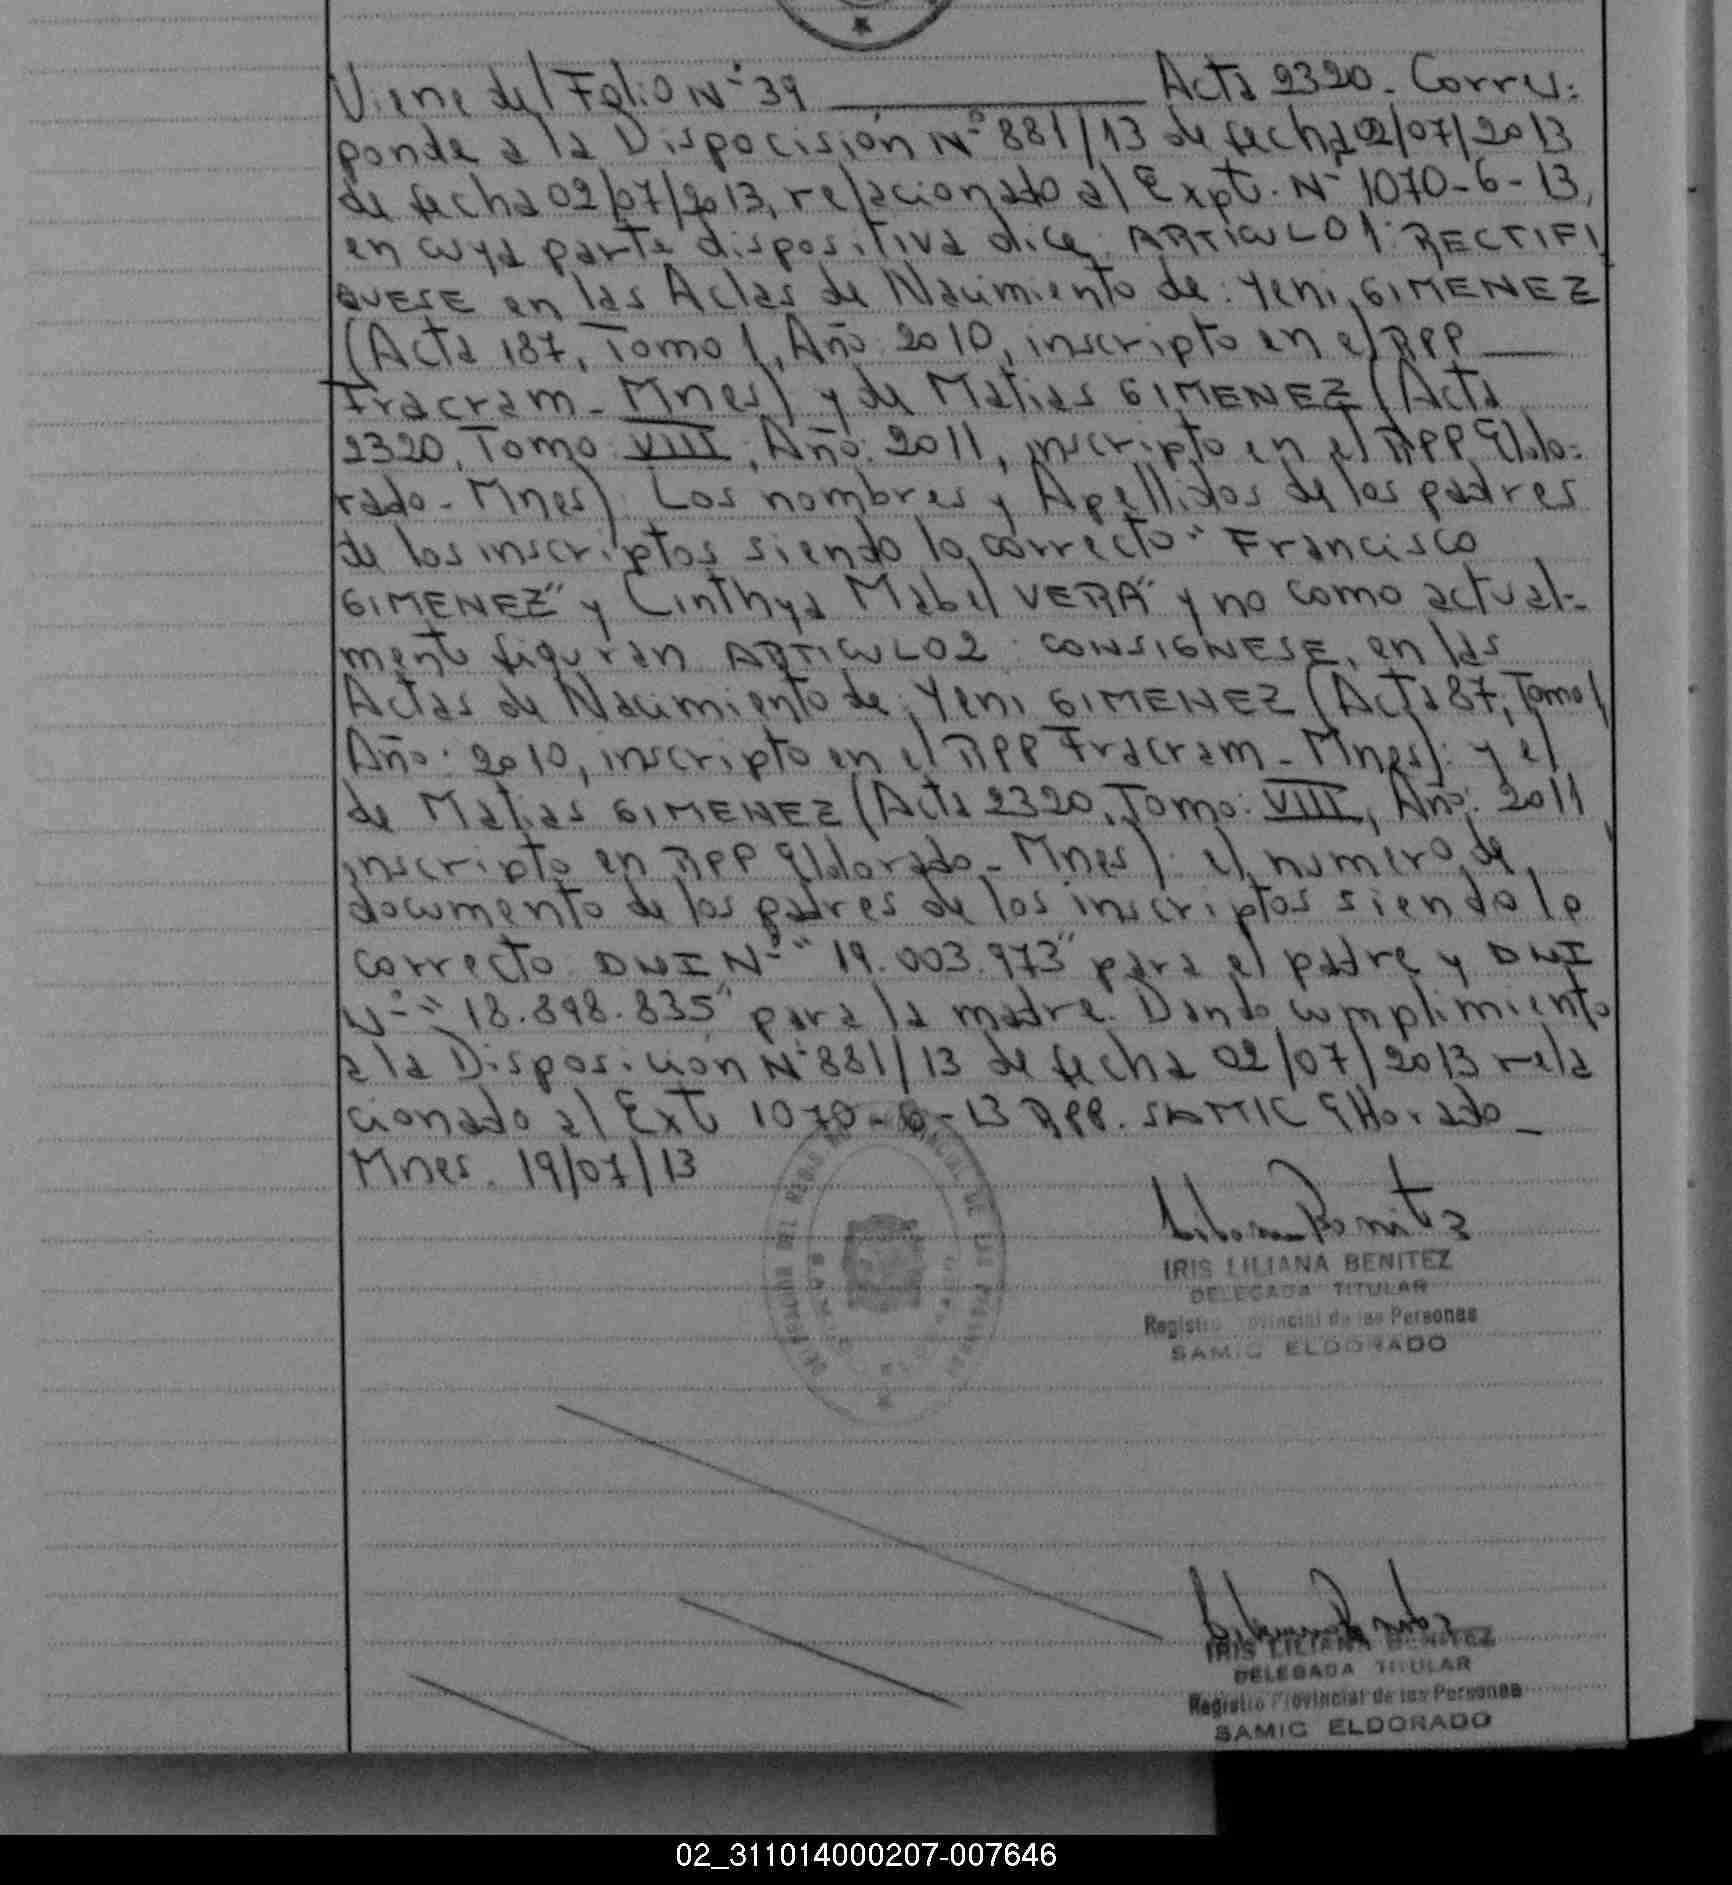 Viene del Folio N° 39 ____________ Acta 2320 - Corres=
ponde a la Dispocisión N° 881/13 de fecha 02/07/2013
de fecha 02/07/2013, relacionado al Expte. N° 1070-6-13,
en cuya parte dispositiva dice: ARTICULO 1: RECTIFI
QUESE en las Actas de Nacimiento de: Yeni GIMENEZ
(Acta 187, Tomo 1, Año: 2010, inscripto en el RPP ____
Fracram - Mnes) y de Matias GIMENEZ (Acta
2320, Tomo: VIII, Año: 2011, inscripto en el RPP Eldo=
rado - Mnes): Los nombres y Apellidos de los padres
de los inscriptos siendo lo correcto "Francisco
GIMENEZ" y Cinthya Mabel VERA" y no como actual=
mente figuran ARTICULO 2: CONSIGNESE, en las
Actas de Nacimiento de: Yeni GIMENEZ (Acta 87, Tomo 1
Año: 2010, inscripto en el RPP Fracram - Mnes): y el
de Matias GIMENEZ (Acta 2320, Tomo: VIII, Año: 2011
inscripto en RPP Eldorado - Mnes): el numero de
documento de los padres de los inscriptos siendo lo
correcto DNI N° "19.003.973" para el padre y DNI
N° "18.898.835" para la madre. Dando cumplimiento
a la Disposición N° 881/13 de fecha 02/07/2013 rela
cionado al Exte 1070-6-13 RPP. SAMIC Eldorado -
Mnes. 19/07/13
IRIS LILIANA BENITEZ
DELEGADA TITULAR
Registro Provincial de las Personas
SAMIC ELDORADO
IRIS LILIANA BENITEZ
DELEGADA TITULAR
Registro Provincial de las Personas
SAMIC ELDORADO
02_311014000207-007646